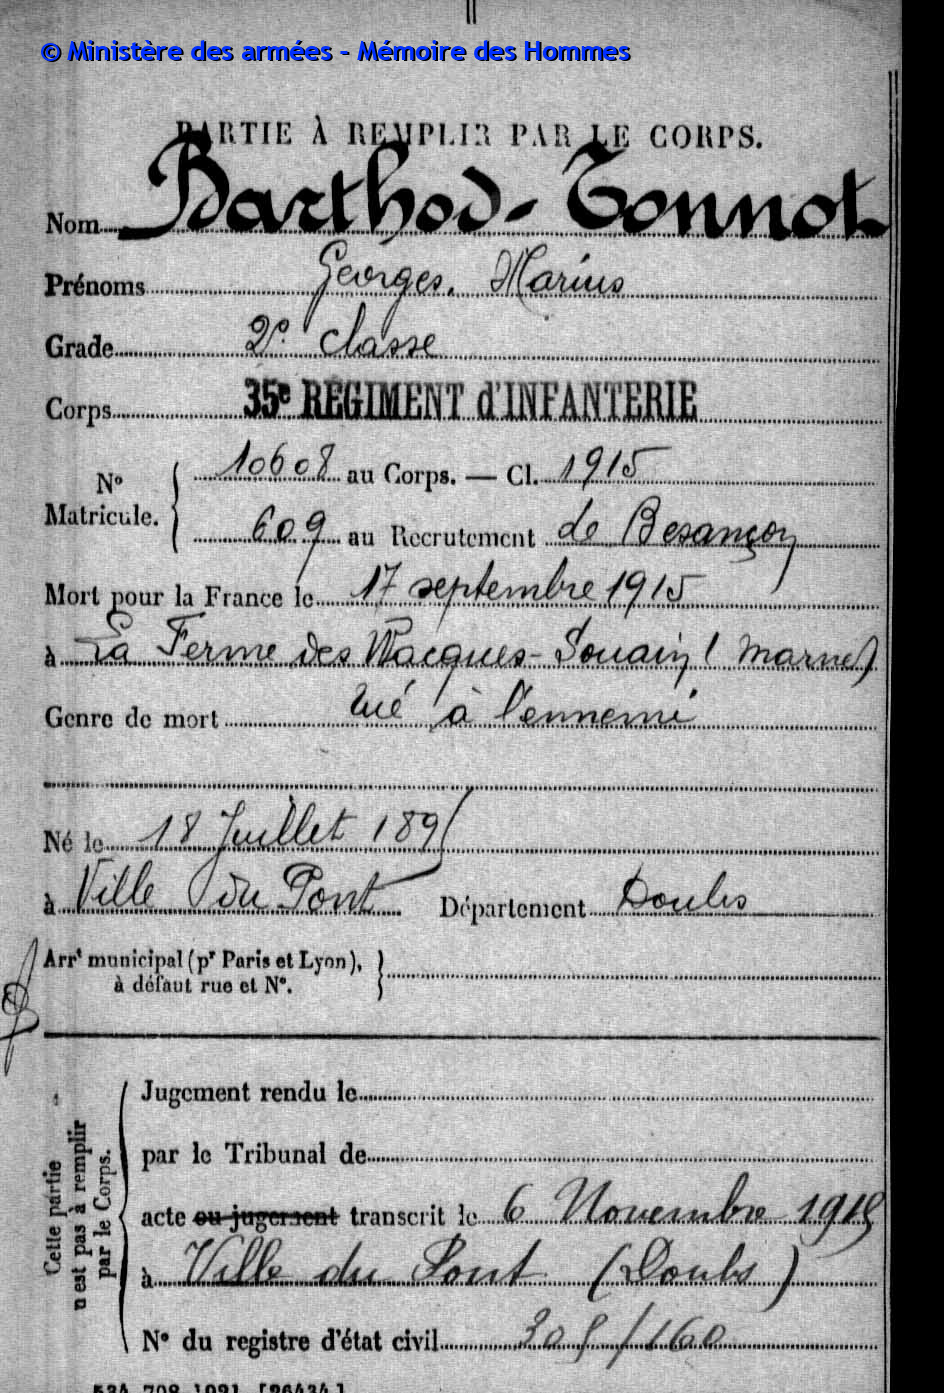 © Ministère des armées - Mémoire des Hommes
PARTIE À REMPLIR PAR LE CORPS.
Nom Barthod-Tonnot
Prénoms Georges, Marius
Grade 2e classe
Corps 35e RÉGIMENT d'INFANTERIE
No Matricule. { 10608 au Corps. — Cl. 1915
609 au Recrutement de Besançon
Mort pour la France le 17 septembre 1915
à La Ferme des Wacques - Souain (Marne)
Genre de mort Tué à l'ennemi
Né le 18 Juillet 1895
à Ville du Pont Département Doubs
Arrt municipal (pr Paris et Lyon), }
à défaut rue et No.
Cette partie n'est pas à remplir par le Corps.
Jugement rendu le
par le Tribunal de
acte ou jugement transcrit le 6 Novembre 1915
à Ville du Pont (Doubs)
No du registre d'état civil 205/160
534-708-1921. [26434]